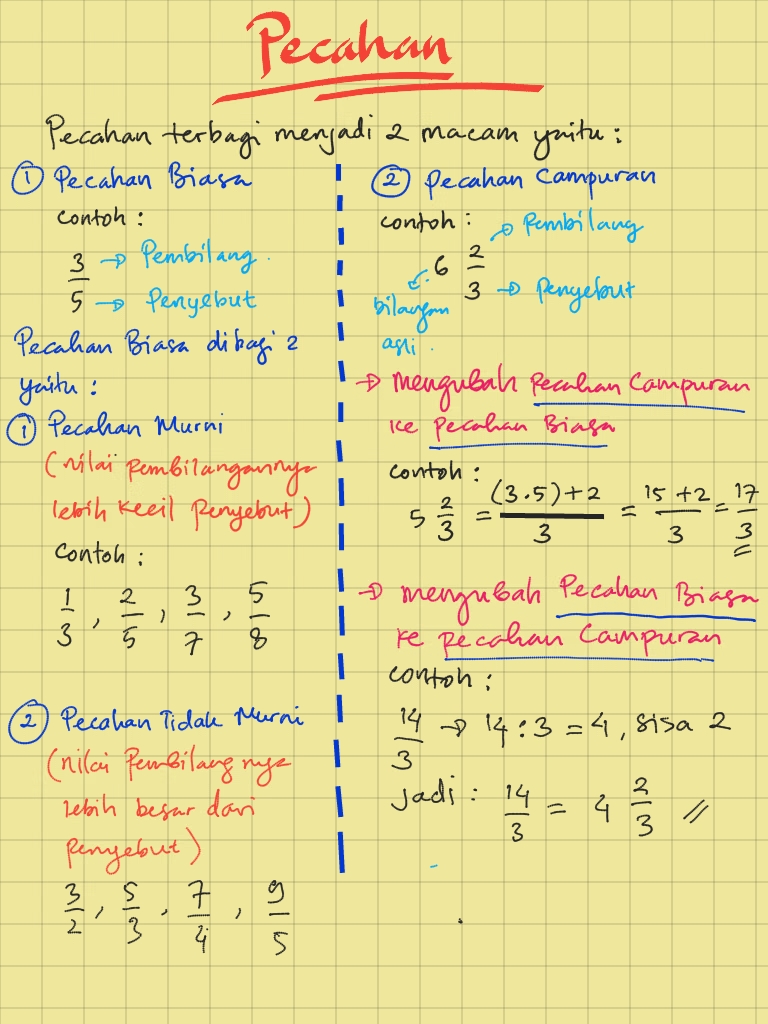 Pecahan
Pecahan terbagi menjadi 2 macam yaitu :
① Pecahan Biasa
contoh :
3/5 → Pembilang
→ Penyebut
Pecahan Biasa dibagi 2
yaitu :
① Pecahan Murni
(nilai pembilangannya
lebih kecil Penyebut)
Contoh :
1/3 , 2/5 , 3/7 , 5/8
② Pecahan Tidak Murni
(nilai Pembilangnya
lebih besar dari
Penyebut)
3/2 , 5/3 , 7/4 , 9/5
② Pecahan Campuran
contoh :
6 2/3 → Pembilang
→ Penyebut
bilangan
asli .
→ Mengubah Pecahan Campuran
ke Pecahan Biasa
contoh :
5 2/3 = (3.5)+2/3 = 15+2/3 = 17/3
→ mengubah Pecahan Biasa
ke pecahan Campuran
contoh :
14/3 → 14 : 3 = 4 , sisa 2
Jadi : 14/3 = 4 2/3 //